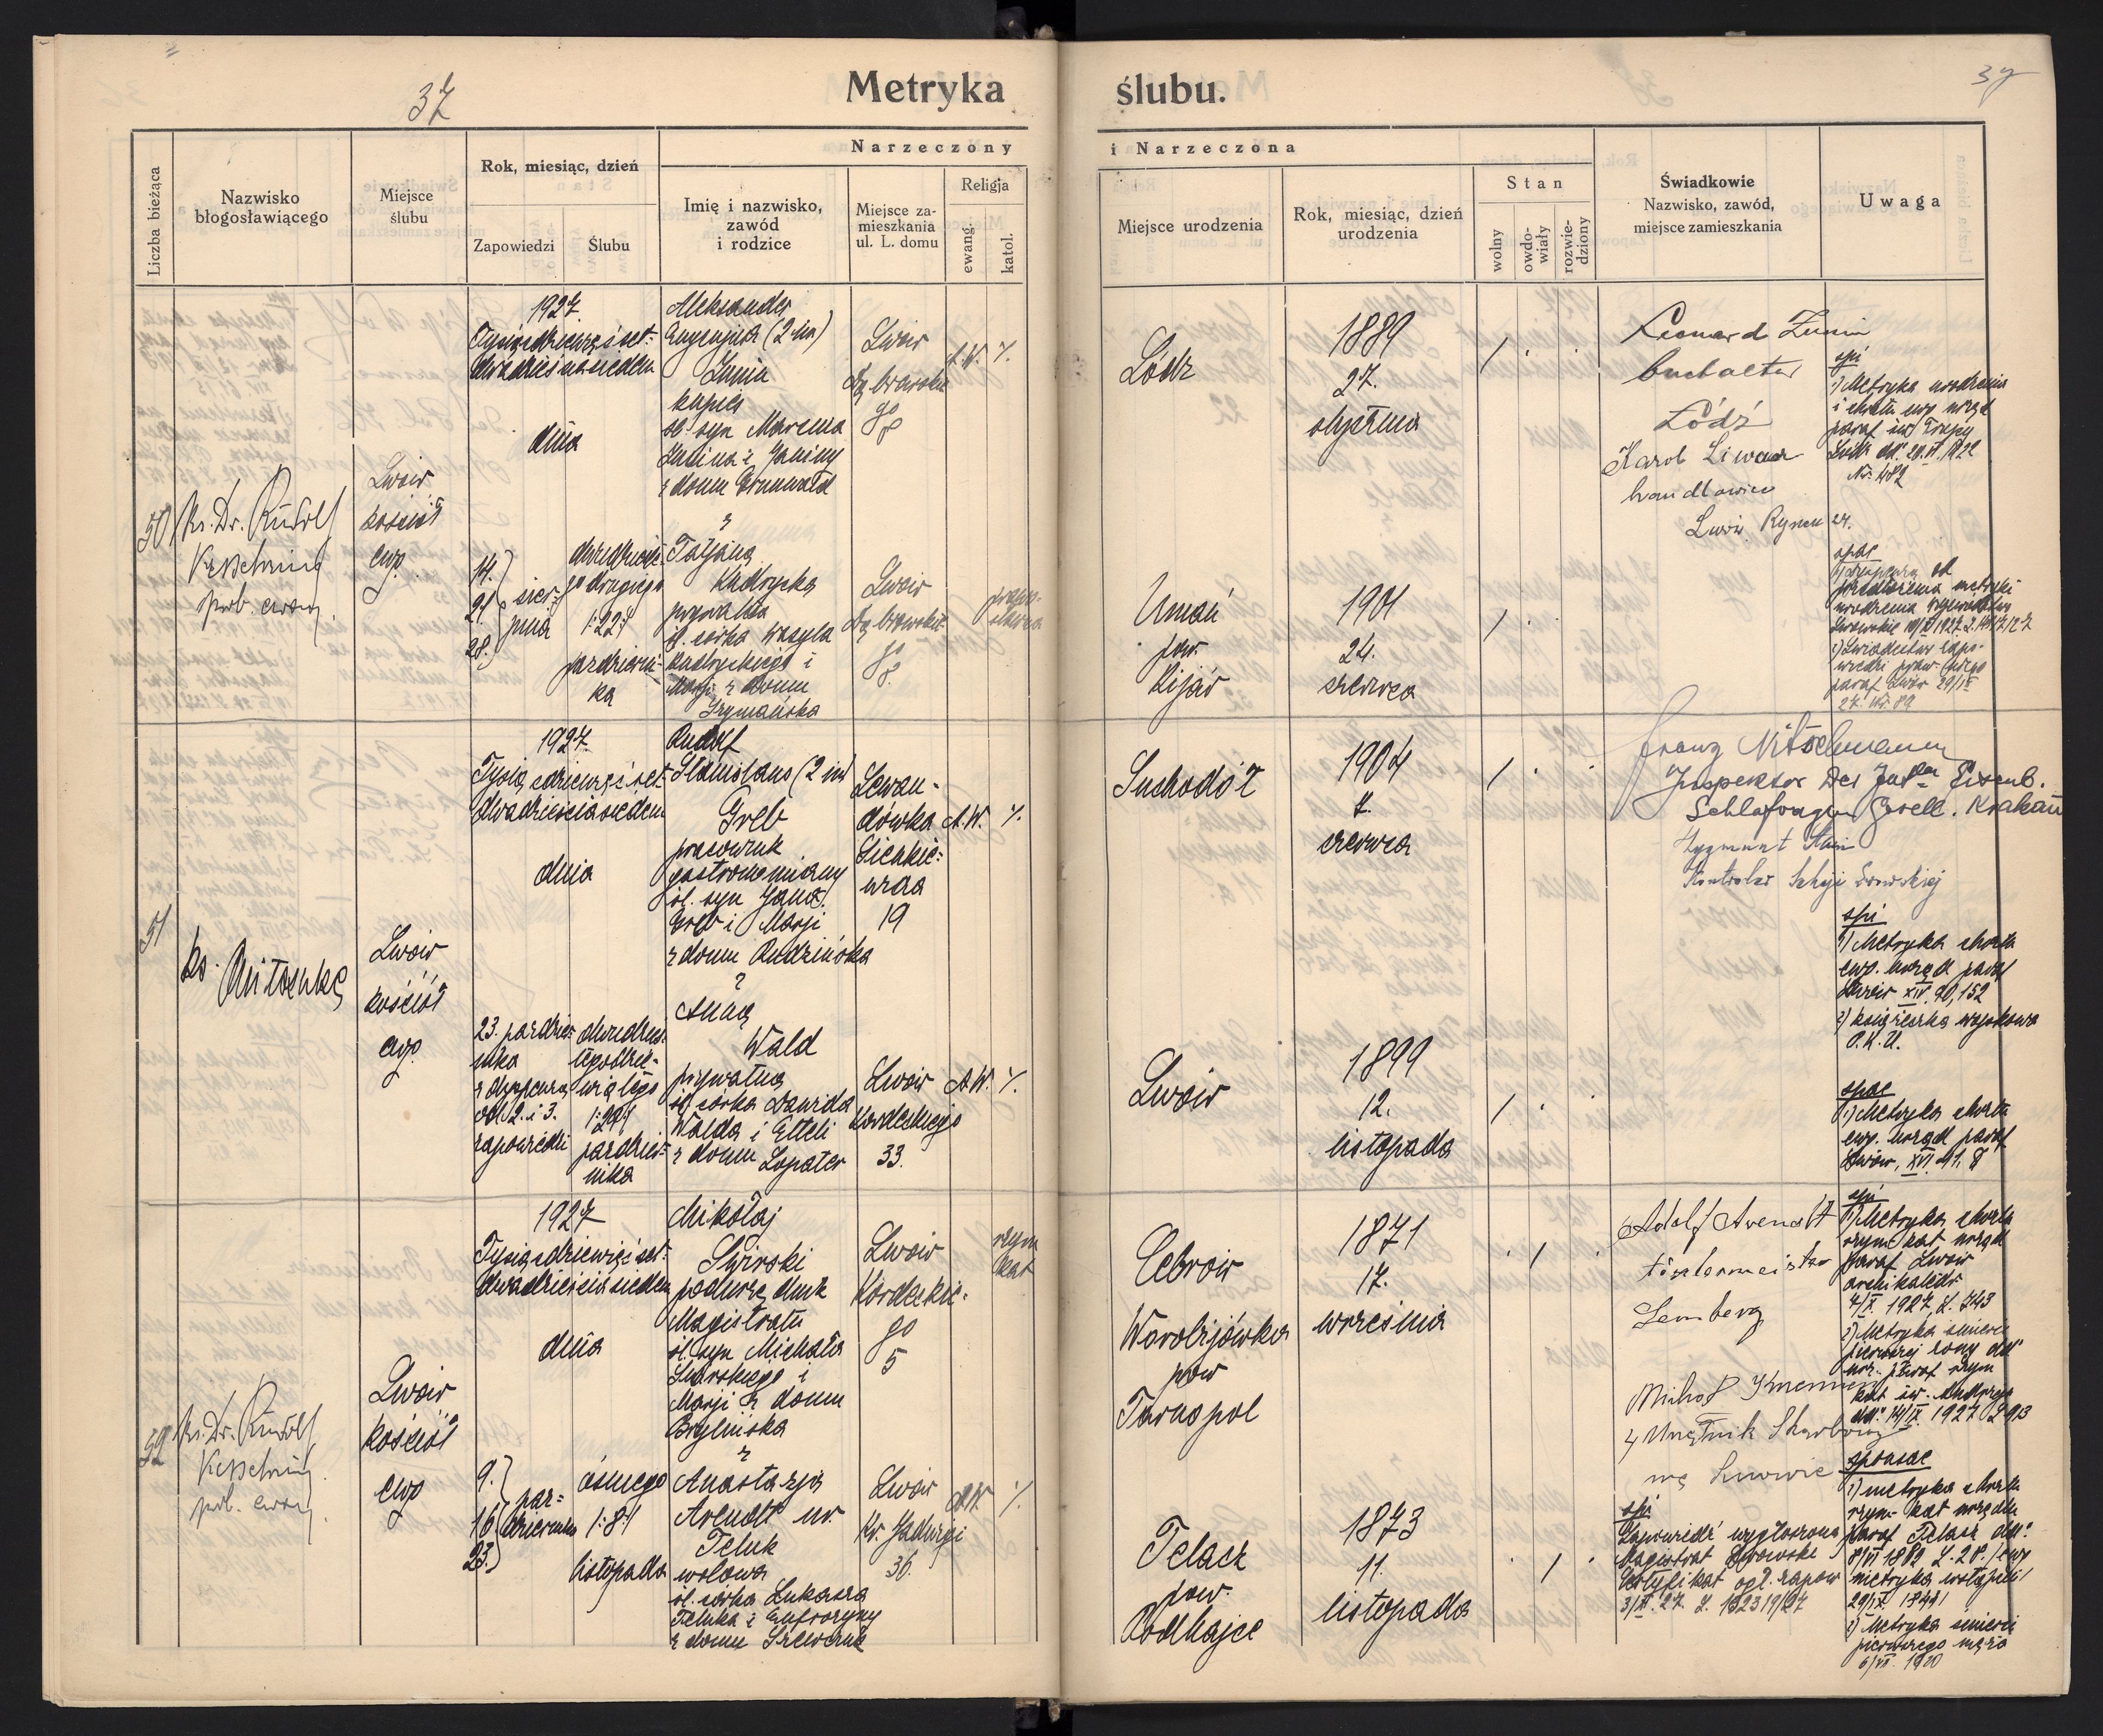 37
Metryka
ślubu.
37
Liczba bieżąca
Nazwisko
błogosławiącego
Miejsce
ślubu
Rok, miesiąc, dzień
Zapowiedzi
Ślubu
Narzeczony
Imię i nazwisko,
zawód
i rodzice
Miejsce za-
mieszkania
ul. L. domu
Religja
ewang.
katol.
i Narzeczona
Miejsce urodzenia
Rok, miesiąc, dzień
urodzenia
Stan
wolny
owdo-
wiały
rozwie-
dziony
Świadkowie
Nazwisko, zawód,
miejsce zamieszkania
Uwaga
50
ks. Dr. Rudolf
Kesselring
Lwów
kościół
ewg.
1927.
Tysiącdziewięćset-
dwadzieściasiedem
dnia
14.
21.
28.
sier-
pnia
dwudzieste-
go drugiego
/:22:/
październi-
ka
Aleksander
Eugenjusz (2 im)
Zunin
kupiec
śl. syn Marcina
Zunina i Janiny
z domu Grunwald
z
Tatjaną
Kudrycką
prywatna
śl. córka Wasyla
Kudryckiego i
Marji z domu
Szymańska
Lwów
Dąbrowskie-
go
8
A.W. /.
Lwów
Dąbrowskie-
go
8.
prawo-
sławna
Łódz
1889
27.
stycznia
/ . .
Humań
pow.
Kijów
1901
24.
czerwca
/ .
Leonard Zunin
buchalter
Łódź
Karol Liwar
handlowiec
Lwów Rynek 24.
spi
1) Metryka urodzenia
i chrztu ewg urząd
paraf św Trójcy
Nr. 482
spae
przedłożenia metryki
urodzenia Województwo
Lwowskie
2) Świadectwo zapo-
wiedzi praw-
paraf Lwów 29/IX
27. Nr. 89
51
ks. Mitschke
Lwów
kościół
ewg.
1927.
Tysiącdziewięćset-
dwadzieściasiedem
dnia
23. paździer-
nika
z dyspensą
od 2. i 3.
zapowiedzi
dwudzies-
tegodzie-
wiątego
/:29:/
paździer-
nika
Rudolf
Stanislaus (2 im)
Greb
pracownik
gastronomiczny
śl. syn Jana
Greb i Marji
z domu Rudzińska
z
Anną
Wald
prywatna
śl. córka Dawida
Walda i Etteli
z domu Lopater
Lewan-
dówka
Sienkie-
wicza
19
A.W. /.
Lwów
Kordeckiego
33.
A.W. /.
Suchodół
1904
7.
czerwca
/ . .
Lwów
1899
12.
listopada
/ . .
Franz Nitschmann
Inspektor der Eisenb.
Schlafwagen Gesell. Krakau
Zygmunt
Kontroler
spi
1) Metryka chrztu
ewg. urząd paraf
Lwów XIV. 90, 152
2) książeczka wojskowa
P.K.U.
spae
1) Metryka chrztu
ewg. urząd paraf
Lwów, XVI. 41. 8
52
ks. Dr. Rudolf
Kesselring
Lwów
kościół
ewg
1927
Tysiącdziewięćset-
dwadzieściasiedem
dnia
9.
16.
23.
paź-
dziernika
ósmego
/:8:/
listopada
Mikołaj
Świrski
podurzędnik
Magistratu
śl. syn Michała
Świrskiego i
Marji z domu
Brylińska
z
Anastazją
Arendt ur.
Teluk
wdowa
śl. córka Łukasza
Teluka i Eufrozyny
z domu Szewczuk
Lwów
Kordeckie-
go
5
rzym
kat
Lwów
Kr. Jadwigi
36.
A.W. /.
Cebrów
Worobijówka
pow
Tarnopol
1871
17.
września
. / .
Telacz
pow.
Podhajce
1873
11.
listopada
. / .
Adolf Arendt
tischlermeister
Lemberg
Urzędnik Skarbowy
we Lwowie
spi
Zapowiedź wygłoszona
Magistrat Lwowski
Certyfikat ogł. zapow
spi
1) Metryka chrztu
rzym kat urząd
paraf Lwów
archikatedr
4/X. 1927. L. 743
2) Metryka śmierci
pierwszej żony dd.
urz. paraf rzym
kat św. Andrzeja
dd. 14/IX. 1927 L 93
sponsae
1) metryka chrztu
rzym-kat urzędu
paraf Telacz dd.
2) Metryka śmierci
pierwszego męża
6/VII. 1920